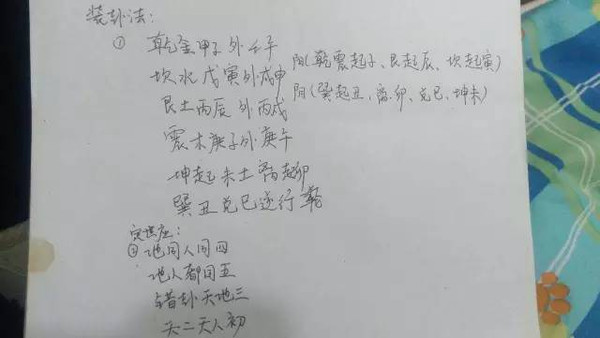 装卦法:
① 乾金甲子外壬午
坎水戊寅外戊申 阳(乾震起子、艮起辰、坎起寅)
艮土丙辰外丙戌 阴(巽起丑、离卯、兑巳、坤未)
震木庚子外庚午
坤起未土离起卯
巽丑兑巳逆行
定世应:
② 地同人同四
地人都同五
错卦天地三
天二天人初